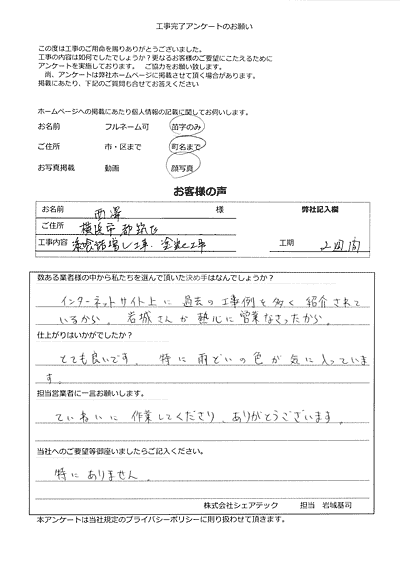 工事完了アンケートのお願い
この度は工事のご用命を賜りありがとうございました。
工事の内容は如何でしたでしょうか？更なるお客様のご要望にこたえるために
アンケートを実施しております。 ご協力をお願い致します。
尚、アンケートは弊社ホームページに掲載させて頂く場合があります。
掲載にあたり、下記のご質問も併せてお答えください
ホームページへの掲載にあたり個人情報の記載に関してお伺いします。
お名前 フルネーム可 苗字のみ
ご住所 市・区まで 町名まで
お写真掲載 動画 顔写真
お客様の声
お名前 西澤 様 弊社記入欄
ご住所 横浜市都筑区
工事内容 工事、塗装工事 工期 2週間
数ある業者様の中から私たちを選んで頂いた決め手はなんでしょうか？
インターネットサイト上に過去の工事例を多く紹介されて
いるから。岩城さんが熱心に営業なさったから。
仕上がりはいかがでしたか？
とても良いです。特に雨どいの色が気に入っていま
す。
担当営業者に一言お願いします。
ていねいに作業してくださり、ありがとうございます。
当社へのご要望等御座いましたらご記入ください。
特にありません。
株式会社シェアテック 担当 岩城基司
本アンケートは当社規定のプライバシーポリシーに則り扱わせて頂きます。